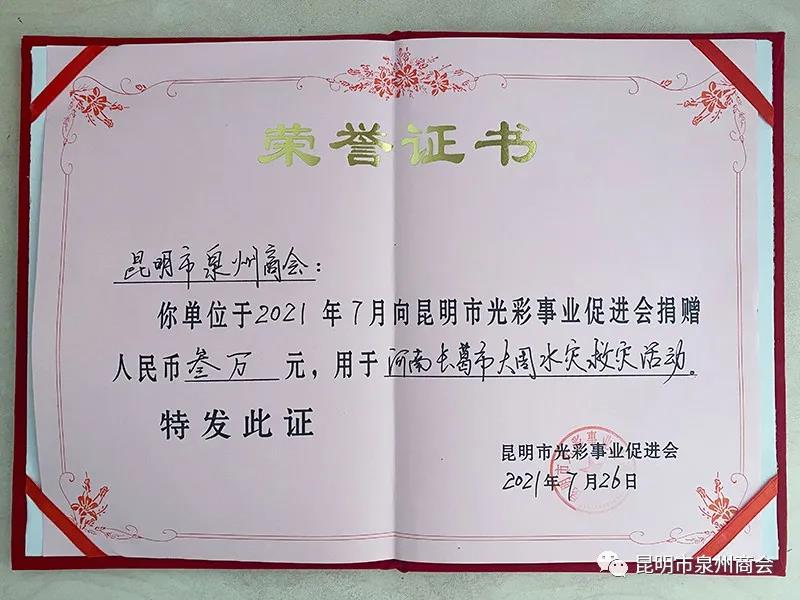 荣誉证书
昆明市泉州商会：
你单位于2021年7月向昆明市光彩事业促进会捐赠
人民币叁万元，用于河南长葛市大周水灾救灾活动。
特发此证
昆明市光彩事业促进会
2021年7月26日
昆明市泉州商会